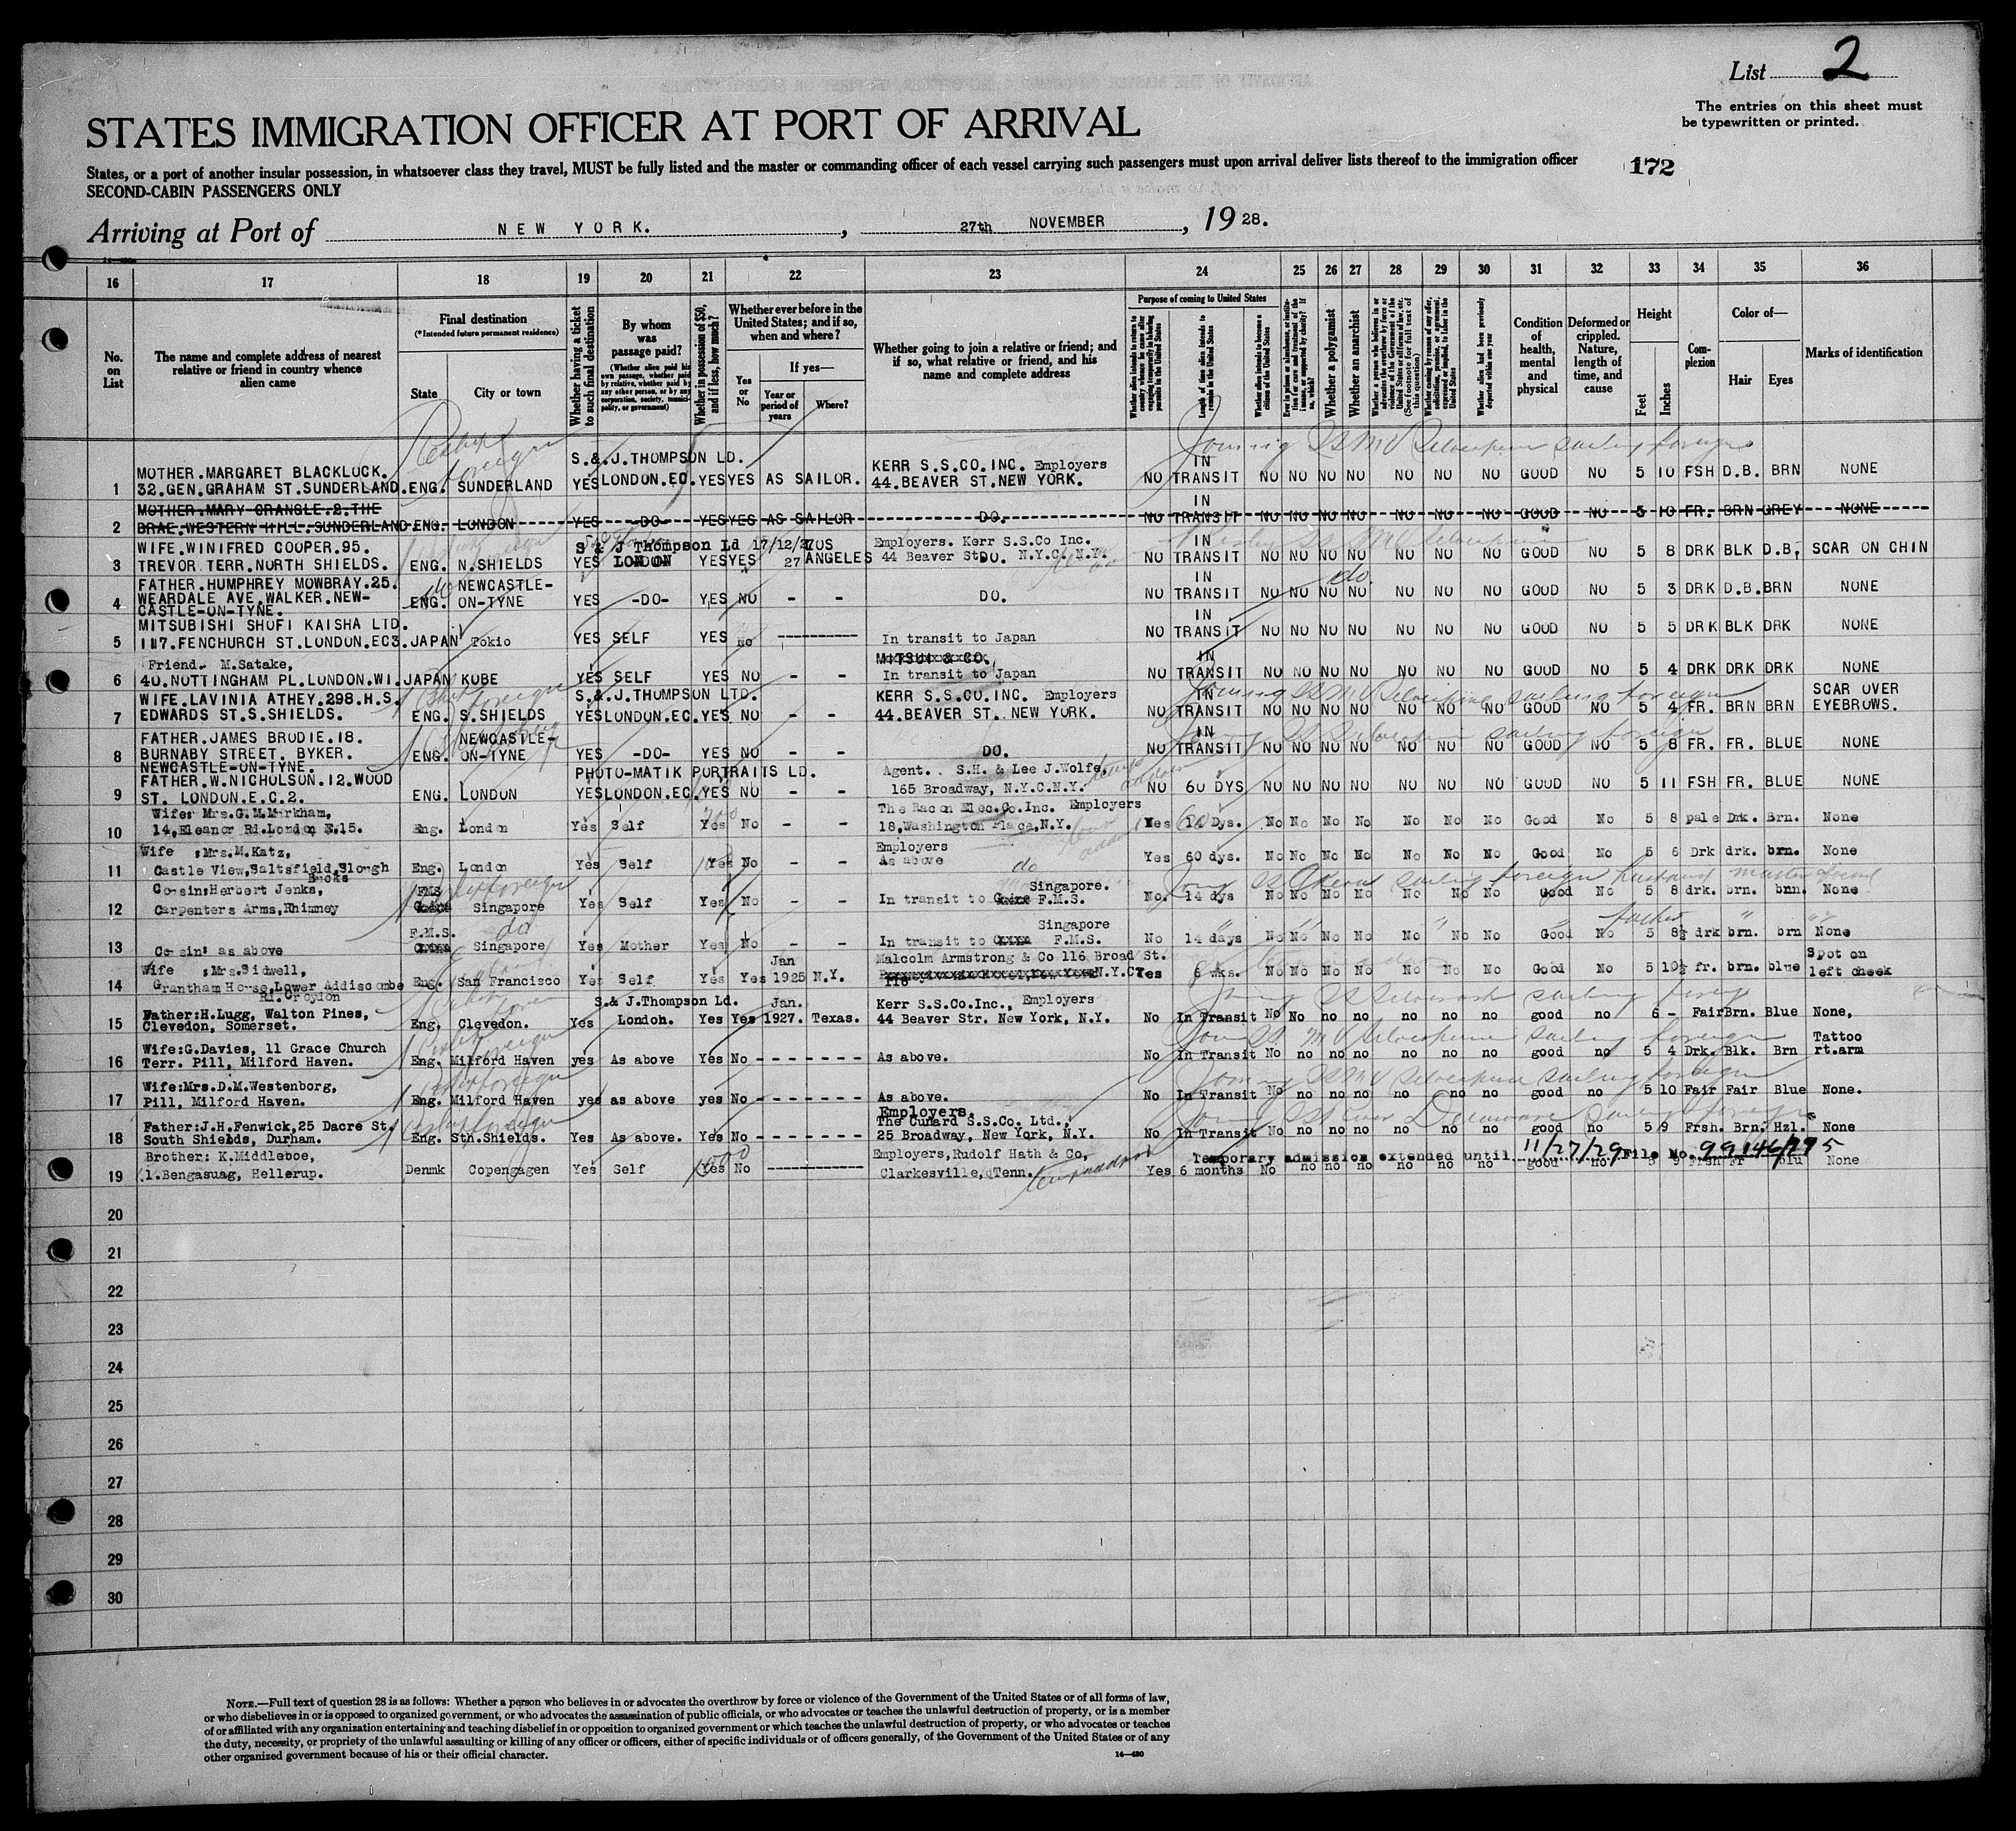 List 2
The entries on this sheet must
be typewritten or printed.
STATES IMMIGRATION OFFICER AT PORT OF ARRIVAL
States, or a port of another insular possession, in whatsoever class they travel, MUST be fully listed and the master or commanding officer of each vessel carrying such passengers must upon arrival deliver lists thereof to the immigration officer
172
SECOND-CABIN PASSENGERS ONLY
Arriving at Port of NEW YORK. , 27th NOVEMBER , 19 28.
16 17 18 19 20 21 22 23 24 25 26 27 28 29 30 31 32 33 34 35 36
No. on List
The name and complete address of nearest relative or friend in country whence alien came
Final destination
(*Intended future permanent residence)
State
City or town
Whether having a ticket to such final destination
By whom was passage paid?
(Whether alien paid his own passage, whether paid by relative, whether paid by any other person, or by any corporation, society, municipality, or government)
Whether in possession of $50, and if less, how much?
Whether ever before in the United States; and if so, when and where?
Yes or No
If yes—
Year or period of years
Where?
Whether going to join a relative or friend; and if so, what relative or friend, and his name and complete address
Purpose of coming to United States
Whether alien intends to return to country whence he came after engaging temporarily in laboring pursuits in the United States
Length of time alien intends to remain in the United States
Whether alien intends to become a citizen of the United States
Whether a polygamist
Whether an anarchist
(See footnote for full text of this question)
Whether alien had been previously deported within one year
Condition of health, mental and physical
Deformed or crippled. Nature, length of time, and cause
Height
Feet
Inches
Complexion
Color of—
Hair
Eyes
Marks of identification
S.&.J.THOMPSON LD.
MOTHER.MARGARET BLACKLOCK. KERR S.S.CO.INC. Employers IN
1 32.GEN.GRAHAM ST.SUNDERLAND. ENG. SUNDERLAND YES LONDON.EC. YES YES AS SAILOR. 44.BEAVER ST.NEW YORK. NO TRANSIT NO NO NO NO NO NO NO GOOD NO 5 10 FSH D.B. BRN NONE
MOTHER.MARY CRANGLE.2.THE IN
2 BRAE.WESTERN HILL.SUNDERLAND ENG. LONDON YES -DO- YES YES AS SAILOR DO. NO TRANSIT NO NO NO NO NO NO NO GOOD NO 5 10 FR. BRN GREY NONE
WIFE.WINIFRED COOPER.95. S & J Thompson Ld 17/12/27 LOS Employers. Kerr S.S.Co Inc. IN
3 TREVOR TERR.NORTH SHIELDS. ENG. N.SHIELDS YES LONDON YES YES 27 ANGELES 44 Beaver St DO. N.Y.C. N.Y. NO TRANSIT NO NO NO NO NO NO NO GOOD NO 5 8 DRK BLK D.B. SCAR ON CHIN
FATHER.HUMPHREY MOWBRAY.25. NEWCASTLE- IN do
4 WEARDALE AVE.WALKER.NEW- ENG. ON-TYNE YES -DO- YES NO - - DO. NO TRANSIT NO NO NO NO NO NO NO GOOD NO 5 3 DRK D.B. BRN NONE
CASTLE-ON-TYNE.
MITSUBISHI SHOFI KAISHA LTD. IN
5 117.FENCHURCH ST.LONDON.EC3. JAPAN Tokio YES SELF YES No ---------- In transit to Japan NO TRANSIT NO NO NO NO NO NO NO GOOD NO 5 5 DRK BLK DRK NONE
Friend. M.Satake, MITSUI & CO. IN
6 40.NOTTINGHAM PL.LONDON.WI. JAPAN KOBE YES SELF YES NO - - In transit to Japan NO TRANSIT NO NO NO NO NO NO NO GOOD NO 5 4 DRK DRK DRK NONE
WIFE.LAVINIA ATHEY.298.H.S. S.&.J.THOMPSON LTD. KERR S.S.CO.INC. Employers IN SCAR OVER
7 EDWARDS ST.S.SHIELDS. ENG. S.SHIELDS YES LONDON.EC. YES NO - - 44.BEAVER ST. NEW YORK. NO TRANSIT NO NO NO NO NO NO NO GOOD NO 5 4 FR. BRN BRN EYEBROWS.
FATHER.JAMES BRODIE.18. NEWCASTLE- IN
8 BURNABY STREET. BYKER. ENG. ON-TYNE YES -DO- YES NO - - DO. NO TRANSIT NO NO NO NO NO NO NO GOOD NO 5 8 FR. FR. BLUE NONE
NEWCASTLE-ON-TYNE.
FATHER.W.NICHOLSON.12.WOOD PHOTO-MATIK PORTRAITS LD. Agent. S.H. & Lee J.Wolfe,
9 ST. LONDON.E.C.2. ENG. LONDON YES LONDON.EC. YES NO - - 165 Broadway, N.Y.C.N.Y. NO 60 DYS NO NO NO NO NO NO NO GOOD NO 5 11 FSH FR. BLUE NONE
Wife: Mrs.G.M.Markham, The Racon Elec.Co.Inc. Employers
10 14,Eleanor Rd.London E.15. Eng. London Yes Self Yes No - - 18,Washington Place,N.Y. Yes 14 Dys. No No No No No No No Good No 5 8 pale Drk. Brn. None
Wife :Mrs.M.Katz, Employers
11 Castle View,Saltsfield,Slough Eng. London Yes Self Yes No - - As above do Yes 60 dys. No No No No No No No Good No 5 6 Drk drk. brn. None
Bucks
Cousin:Herbert Jenks, FMS Singapore.
12 Carpenters Arms,Rhimney Singapore Yes Self Yes No - - In transit to F.M.S. No. 14 dys No No No No No No No good No 5 8 drk. brn. bnn. None
F.M.S. do Singapore
13 Cousin: as above Singapore Yes Mother Yes No - - In transit to F.M.S. No 14 days No No No No No No No Good No 5 8½ drk brn. brn None
Wife :Mrs.Sidwell, Jan Malcolm Armstrong & Co 116 Broad St. Spot on
14 Grantham House,Lower Addiscombe Eng. San Francisco Yes Self Yes Yes 1925 N.Y. N.Y.C. Yes 6 wks. No No No No No No No Good No 5 10½ fr. brn. blue left cheek
Rd.Croydon
Father:H.Lugg, Walton Pines, S.& J.Thompson Ld. Jan. Kerr S.S.Co.Inc., Employers
15 Clevedon, Somerset. Eng. Clevedon. Yes London. Yes Yes 1927. Texas. 44 Beaver Str. New York, N.Y. No In Transit No No no no no no no good no 6 - Fair Brn. Blue None,
Wife:G.Davies, 11 Grace Church Tattoo
16 Terr. Pill, Milford Haven. Eng. Milford Haven yes As above Yes No - - - - - - - As above. No In Transit No no no no no no no good no 5 4 Drk. Blk. Brn rt.arm
Wife:Mrs.D.M.Westenborg,
17 Pill, Milford Haven. Eng. Milford Haven yes as above yes No - - - - - - - As above. No In Transit No no no no no no no good no 5 10 Fair Fair Blue None.
Employers.
Father:J.H.Fenwick,25 Dacre St. The Cunard S.S.Co. Ltd.,
18 South Shields, Durham. Eng. Sth.Shields. Yes As above. Yes No - - - - - - - 25 Broadway, New York, N.Y. No In Transit No no no no no no no good no 5 9 Frsh. Brn. Hzl. None
Brother: K.Middleboe, Employers,Rudolf Hath & Co, Temporary admission extended until 11/27/29 File No. 99146/295
19 1.Bengasuag, Hellerup. Denmk Copengagen Yes Self Yes No ------------ Clarkesville, Tenn. Yes 6 months No no no no no no no good no 5 9 Frsh Fr blu None
20
21
22
23
24
25
26
27
28
29
30
NOTE.—Full text of question 28 is as follows: Whether a person who believes in or advocates the overthrow by force or violence of the Government of the United States or of all forms of law,
or who disbelieves in or is opposed to organized government, or who advocates the assassination of public officials, or who advocates or teaches the unlawful destruction of property, or is a member
of or affiliated with any organization entertaining and teaching disbelief in or opposition to organized government or which teaches the unlawful destruction of property, or who advocates or teaches
the duty, necessity, or propriety of the unlawful assaulting or killing of any officer or officers, either of specific individuals or of officers generally, of the Government of the United States or of any
other organized government because of his or their official character.
14—430